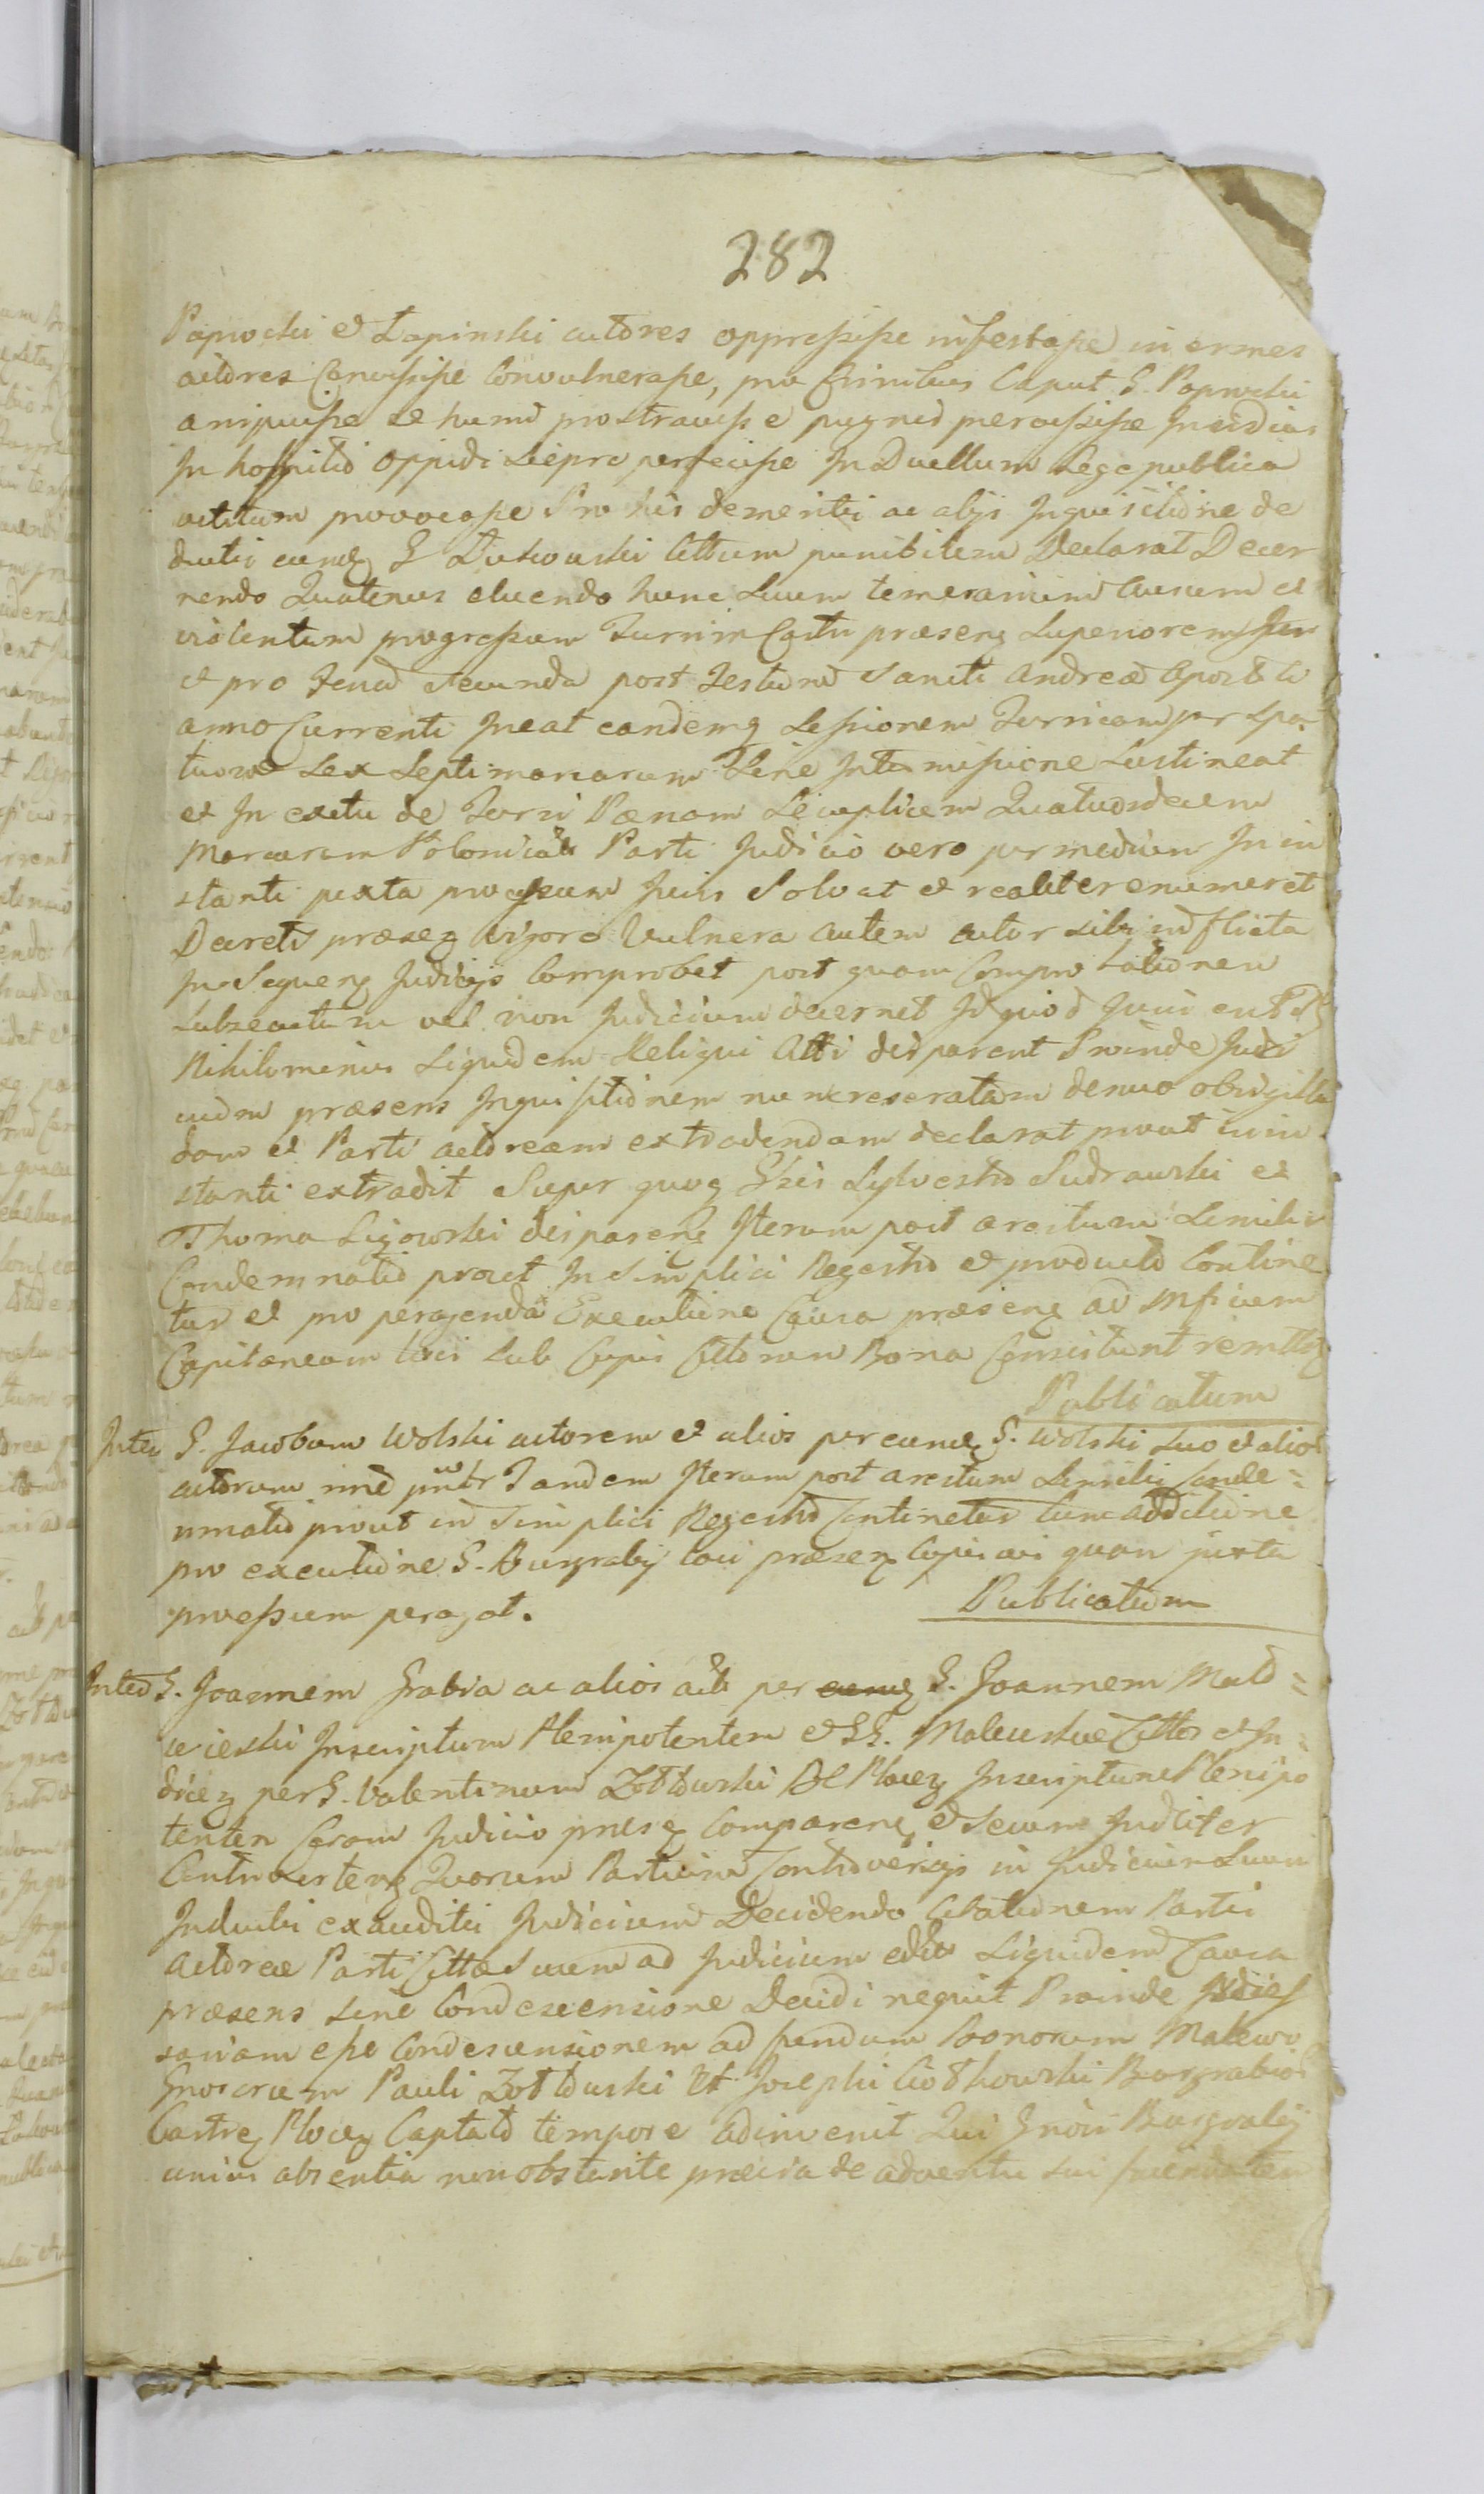 282
Paprocki et Łapinski actores oppressisse infestasse in ermes
actores Concussisse Convulnerasse, pro Crinibus Caput G. Paprocki
arripuisse se humo prostravisse pugnis percussisse Insidias
In hospitio oppidi Sierpc perfecisse In Duellum Lege publica
vetitum provocasse Pro his demeritis ac alijs Inquisitione de
ductis eundq G Dutkowski Cittum punibilem Declarat Decer
nendo Quatenus eluendo hunc Suum temerarium Ausum et
violentum progressum Turrim Castri præsenq Superiorem
et pro feria secunda post Festum Sancti Andreæ Apostoli
anno Currenti Ineat eandemq Sessionem Turricam per Spa
tium Sex Septimanarum Sine Intermissione Sustineat
et In exitu de Turri Pœnam Quatuordecem
Marcarum Polonical Parti Judicio vero per medium In in
stanti juxta processum Juris Solvat et realiter enumeret
Decreti præseq vigore Vulnera autem actor sibi inflicta
In Sequenq Judicijs Comprobet post quam Comprobationem
Subsecutam vel non Judicium decernet Id quod Juris erit
Nihilominus Siquidem Reliqui Atti disparent Proinde Judi
cium præsens Inquisitionem nunc reseratam denuo obsigillan
dam et Parti actoreæ extradendam declarat prout in in
stanti extradit Super quoq Gsis Sylvestro Sudrawski et
Thoma Ligowski disparenq Iterum post arestum Similis
Condemnatio prout In Simplici Regestro et producto Contine
tur et pro peragenda Executione Causa præsenq ad Offcium
Capitaneum loci Sub Cujus Cittorum Bona Consistunt remittq
Publicatum
Inter G. Jacobum Wolski actorem et alios per eundq G. Wolski suo et alior
actorum nnē Tandem Iterum post arestum Similis Conde=
mnatio prout in Simplici Regestro Continetur cum additione
pro executione G. Burgrabij loci præseq Cujusvis quam juxta
processum peragat. Publicatum
Inter G. Joannem Grabia ac alios act per eundq G. Joannem Mało=
wieski Inscriptum Plenipotentem et GG. Malewskie Cittos et In=
dricq per G. Valentinum Żołtowski Plocq Inscriptum Plenipo
tenten Coram Judicio præsq Comparenq et Secum Judciter
Controvertenq Quorum Partium Controversijs in Judicium Suum
Inductis exauditis Judicium Decidendo Citationem Partis
Actoreæ Parti Cittæ Suum ad Judicium edit Siquidem Causa
præsens sine Condescensione Decidi nequit Proinde
sariam esse Condescensionem ad fundum Bonorum Malewo
Gnosorum Pauli Żołtowski Et Josephi Ciółkowski Burgrabior
Castrq Plocq Captato tempore adinvenit Qui Gnosi Burgrabij
unius absentia non obstante prævia de adventu sui scienda ten